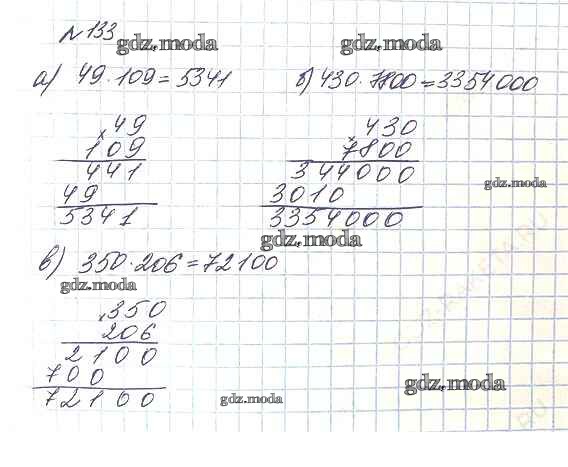 № 133
gdz.moda gdz.moda
а) 49·109=5341 б) 430·7800=3354000
×49
109
441
49
5341
×430
7800
344000
3010
3354000
gdz.moda
gdz.moda
в) 350·206=72100
gdz.moda
×350
206
2100
700
72100
gdz.moda
gdz.moda